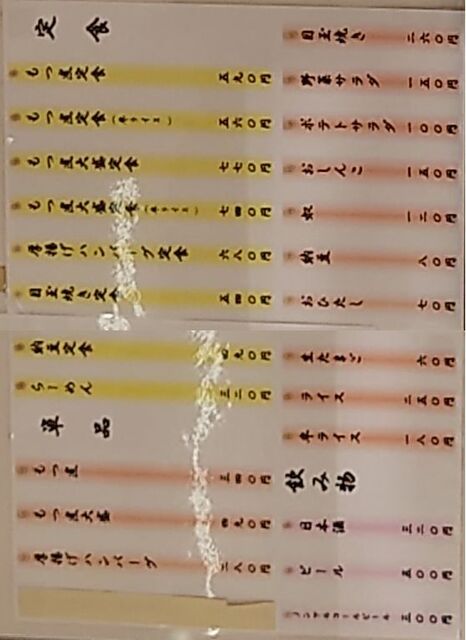 定食
もつ煮定食 五九〇円
もつ煮定食(半ライス) 五六〇円
もつ煮大盛定食 七七〇円
もつ煮大盛定食(半ライス) 七四〇円
厚揚げハンバーグ定食 六八〇円
目玉焼き定食 五四〇円
納豆定食 四九〇円
らーめん 三二〇円
単品
もつ煮 三四〇円
もつ煮大盛 四九〇円
厚揚げハンバーグ 二八〇円
目玉焼き 二六〇円
野菜サラダ 一五〇円
ポテトサラダ 一〇〇円
おしんこ 一五〇円
奴 一二〇円
納豆 八〇円
おひたし 七〇円
生たまご 六〇円
ライス 二五〇円
半ライス 一八〇円
飲み物
日本酒 三二〇円
ビール 五〇〇円
ノンアルコールビール 三〇〇円